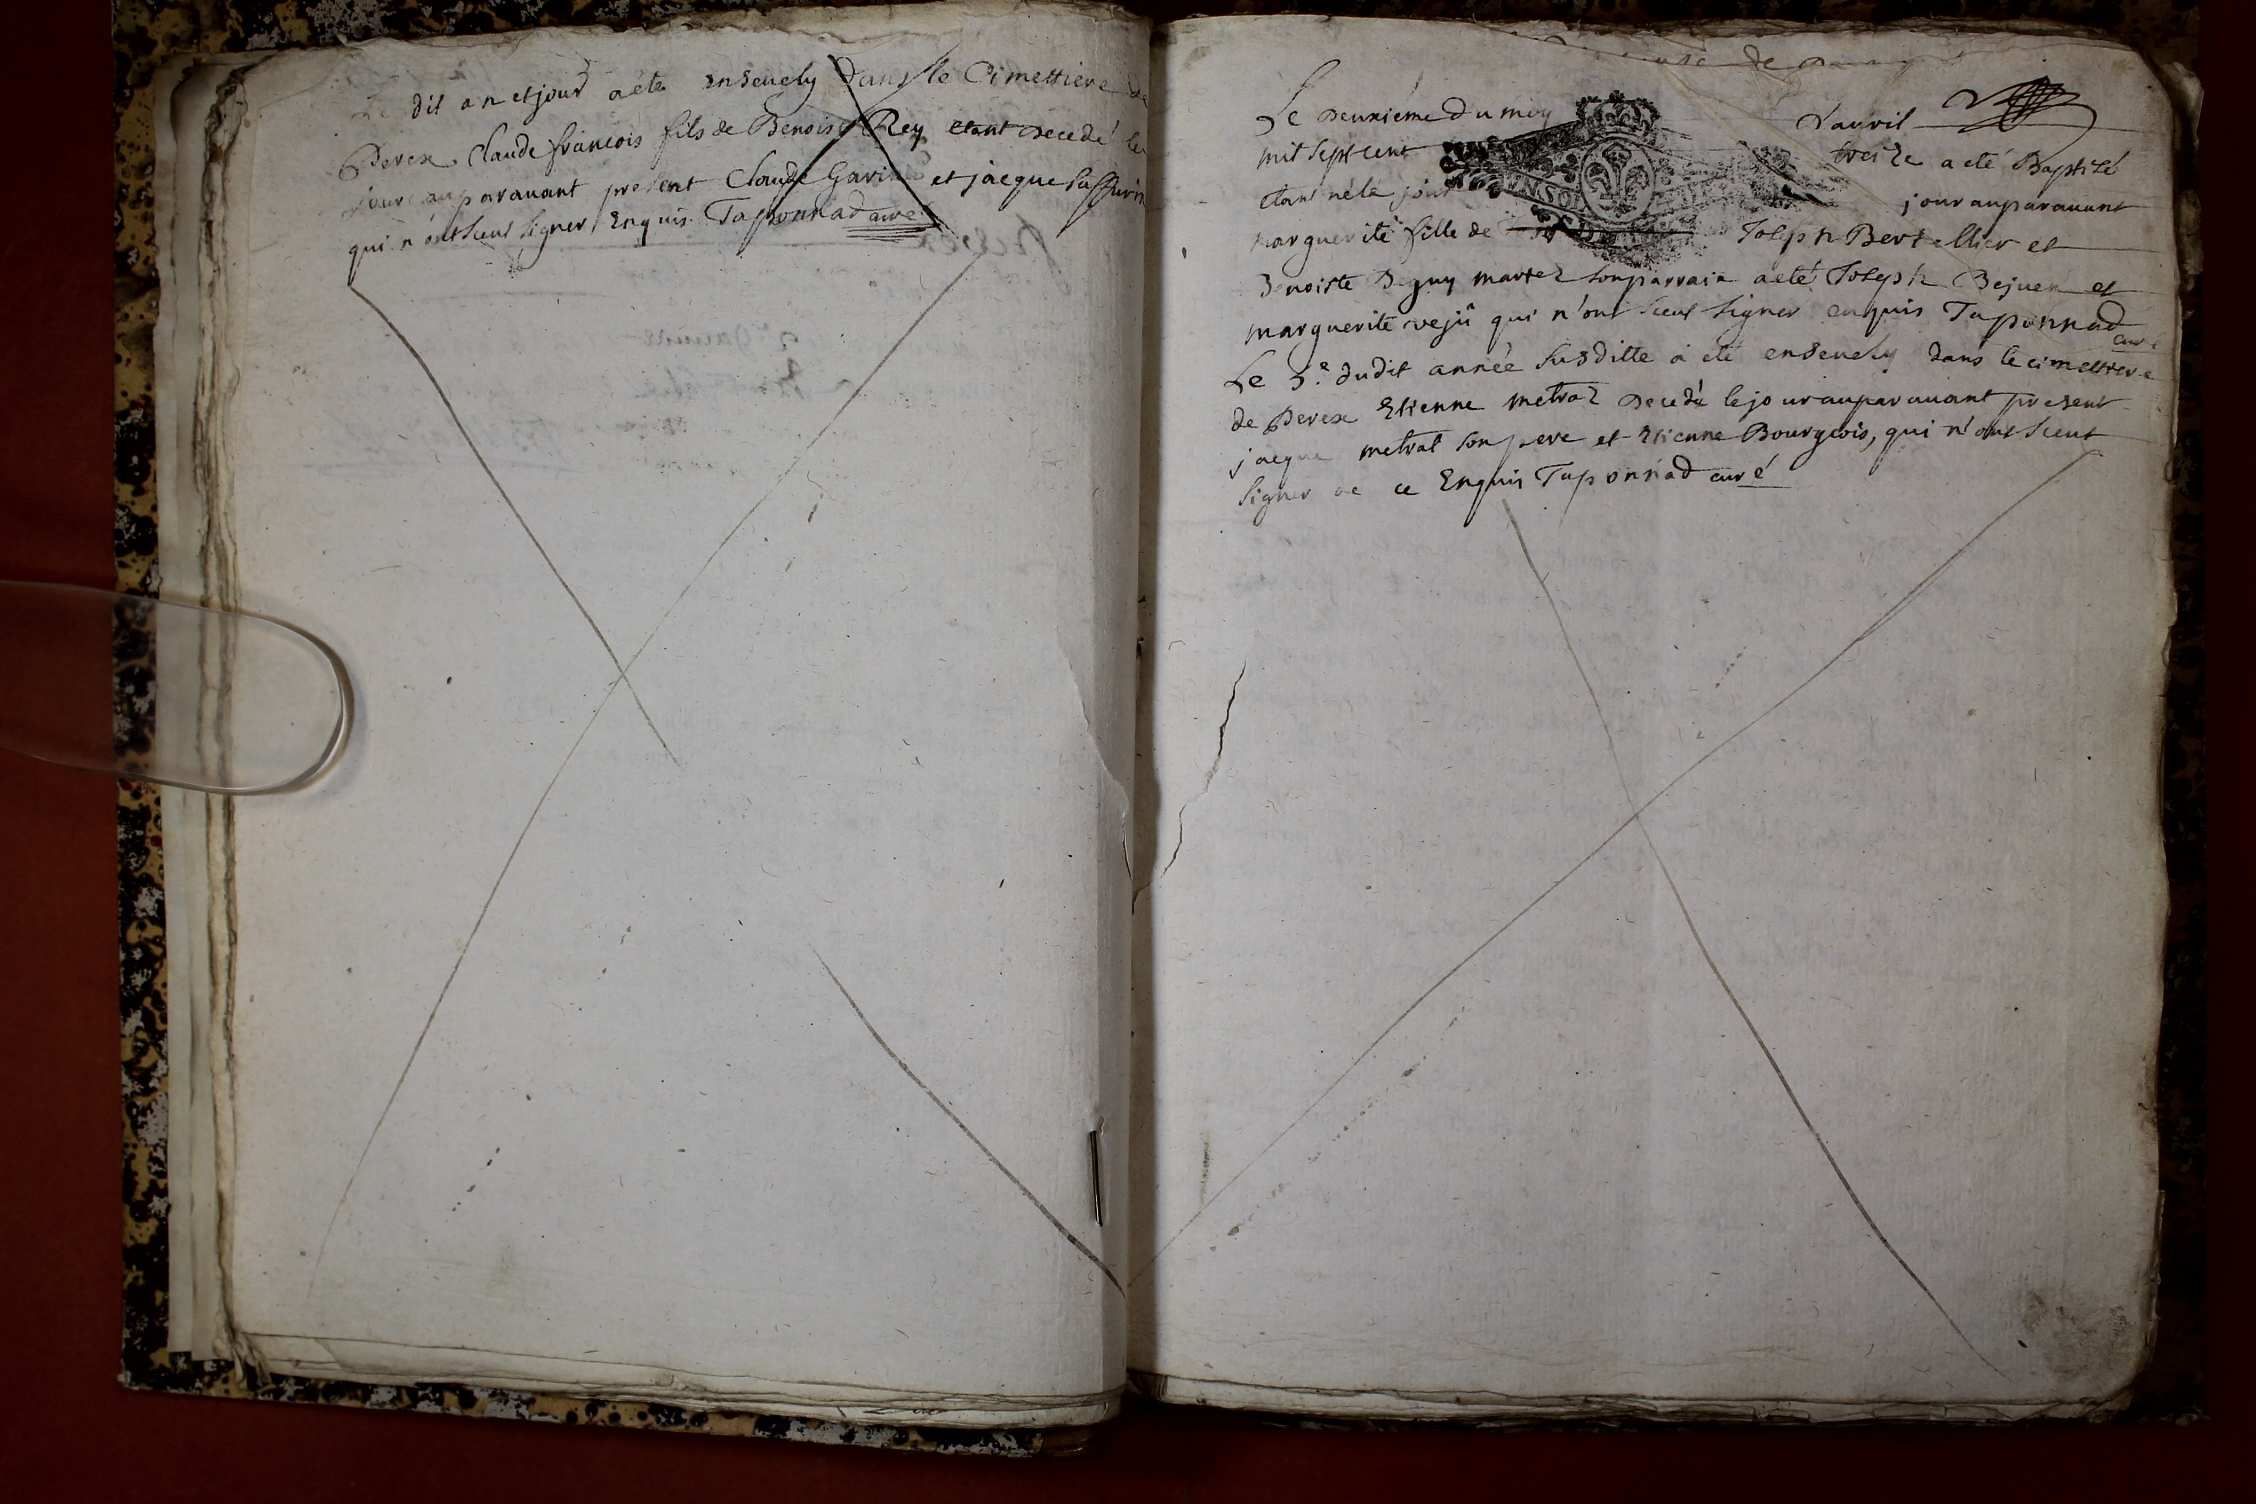 Le dit an et jour a ete ensevely dans le Cimettiere de
Perex Claude francois fils de Benoist Rey etant decedé le
jour auparavant present Claude Garin et jacque
qui n'ont sceut signer Enquis Taponnad curé
Le deuxiéme du moy d'avril
mil sept cent treize a eté Baptisé
etant née le jour jour auparavant
marguerite fille de Joseph Bertellier et
Benoiste mariez son parrain a eté Joseph Bejuer et
marguerite vejú qui n'ont sceut signer enquis Taponnad
curé
Le 5.e dudit année susditte a eté ensevely dans le cimettiere
de Perex Etienne metral decedé le jour auparavant present
jacque metral son pere et Etienne Bourgeois, qui n'ont sceut
signer de ce Enquis Taponnad curé